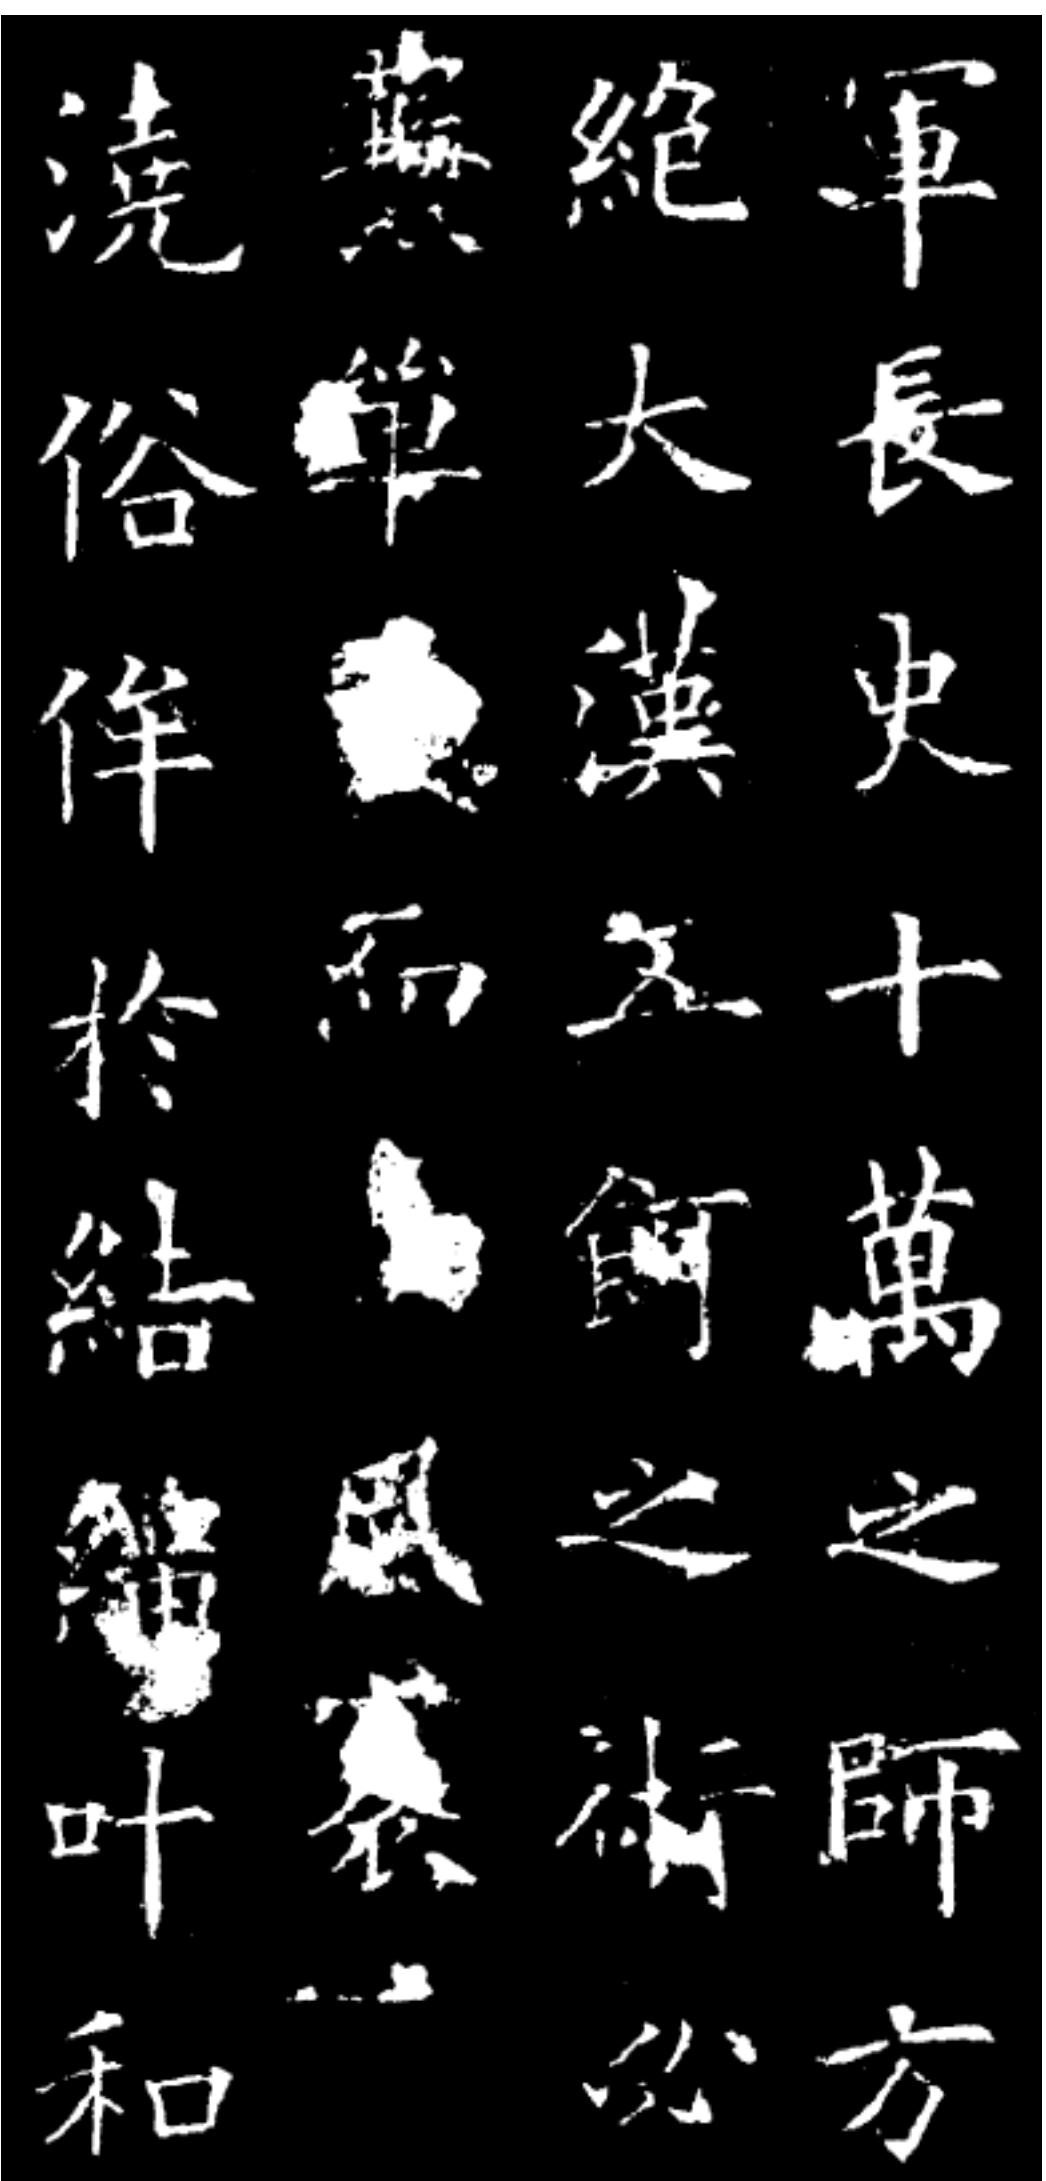 軍長史十萬之師方
絶大漢五餌之術㳂
燕簞而風裘一
澆俗侔於結繩叶和